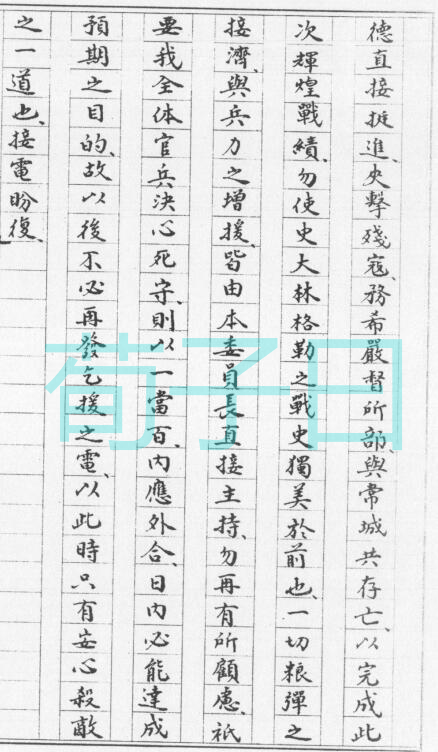 德直接挺進、夾擊殘寇、務希嚴督所部、與常城共存亡、以完成此
次輝煌戰績、勿使史大林格勒之戰史獨美於前也、一切粮彈之
接濟、與兵力之增援、皆由本委員長直接主持、勿再有所顧慮、祇
要我全体官兵決心死守、則以一當百、內應外合、日內必能達成
預期之目的、故以後不必再發乞援之電、以此時只有安心殺敵
之一道也、接電盼復、
荀子曰